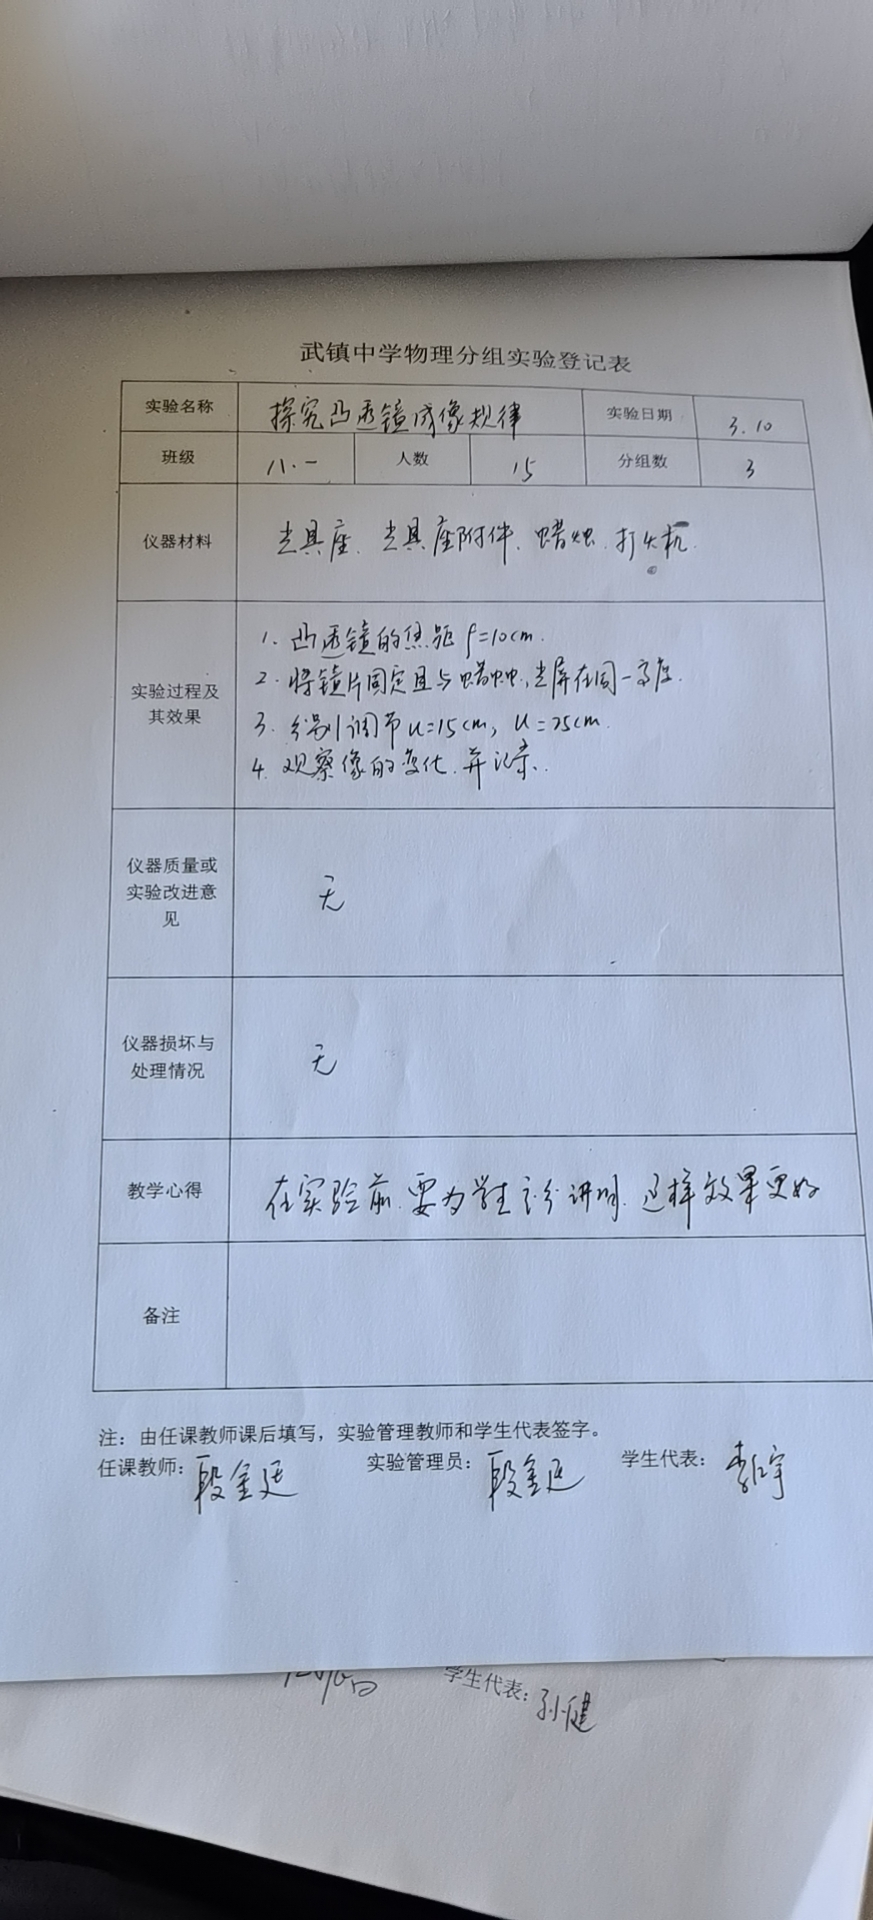 武镇中学物理分组实验登记表
实验名称 探究凸透镜成像规律 实验日期 3.10
班级 八.一 人数 15 分组数 3
仪器材料 光具座、光具座附件、蜡烛、打火机.
实验过程及其效果
1. 凸透镜的焦距 f=10cm.
2. 将镜片固定且与蜡烛,光屏在同一高度.
3. 分别调节 u=15cm, u=25cm.
4. 观察像的变化.并记录.
仪器质量或
实验改进意
见
无
仪器损坏与
处理情况
无
教学心得 在实验前.要为学生充分讲明.这样效果更好
备注
注:由任课教师课后填写,实验管理教师和学生代表签字。
任课教师:段金廷 实验管理员:段金廷 学生代表:李仁宇
学生代表:孙健